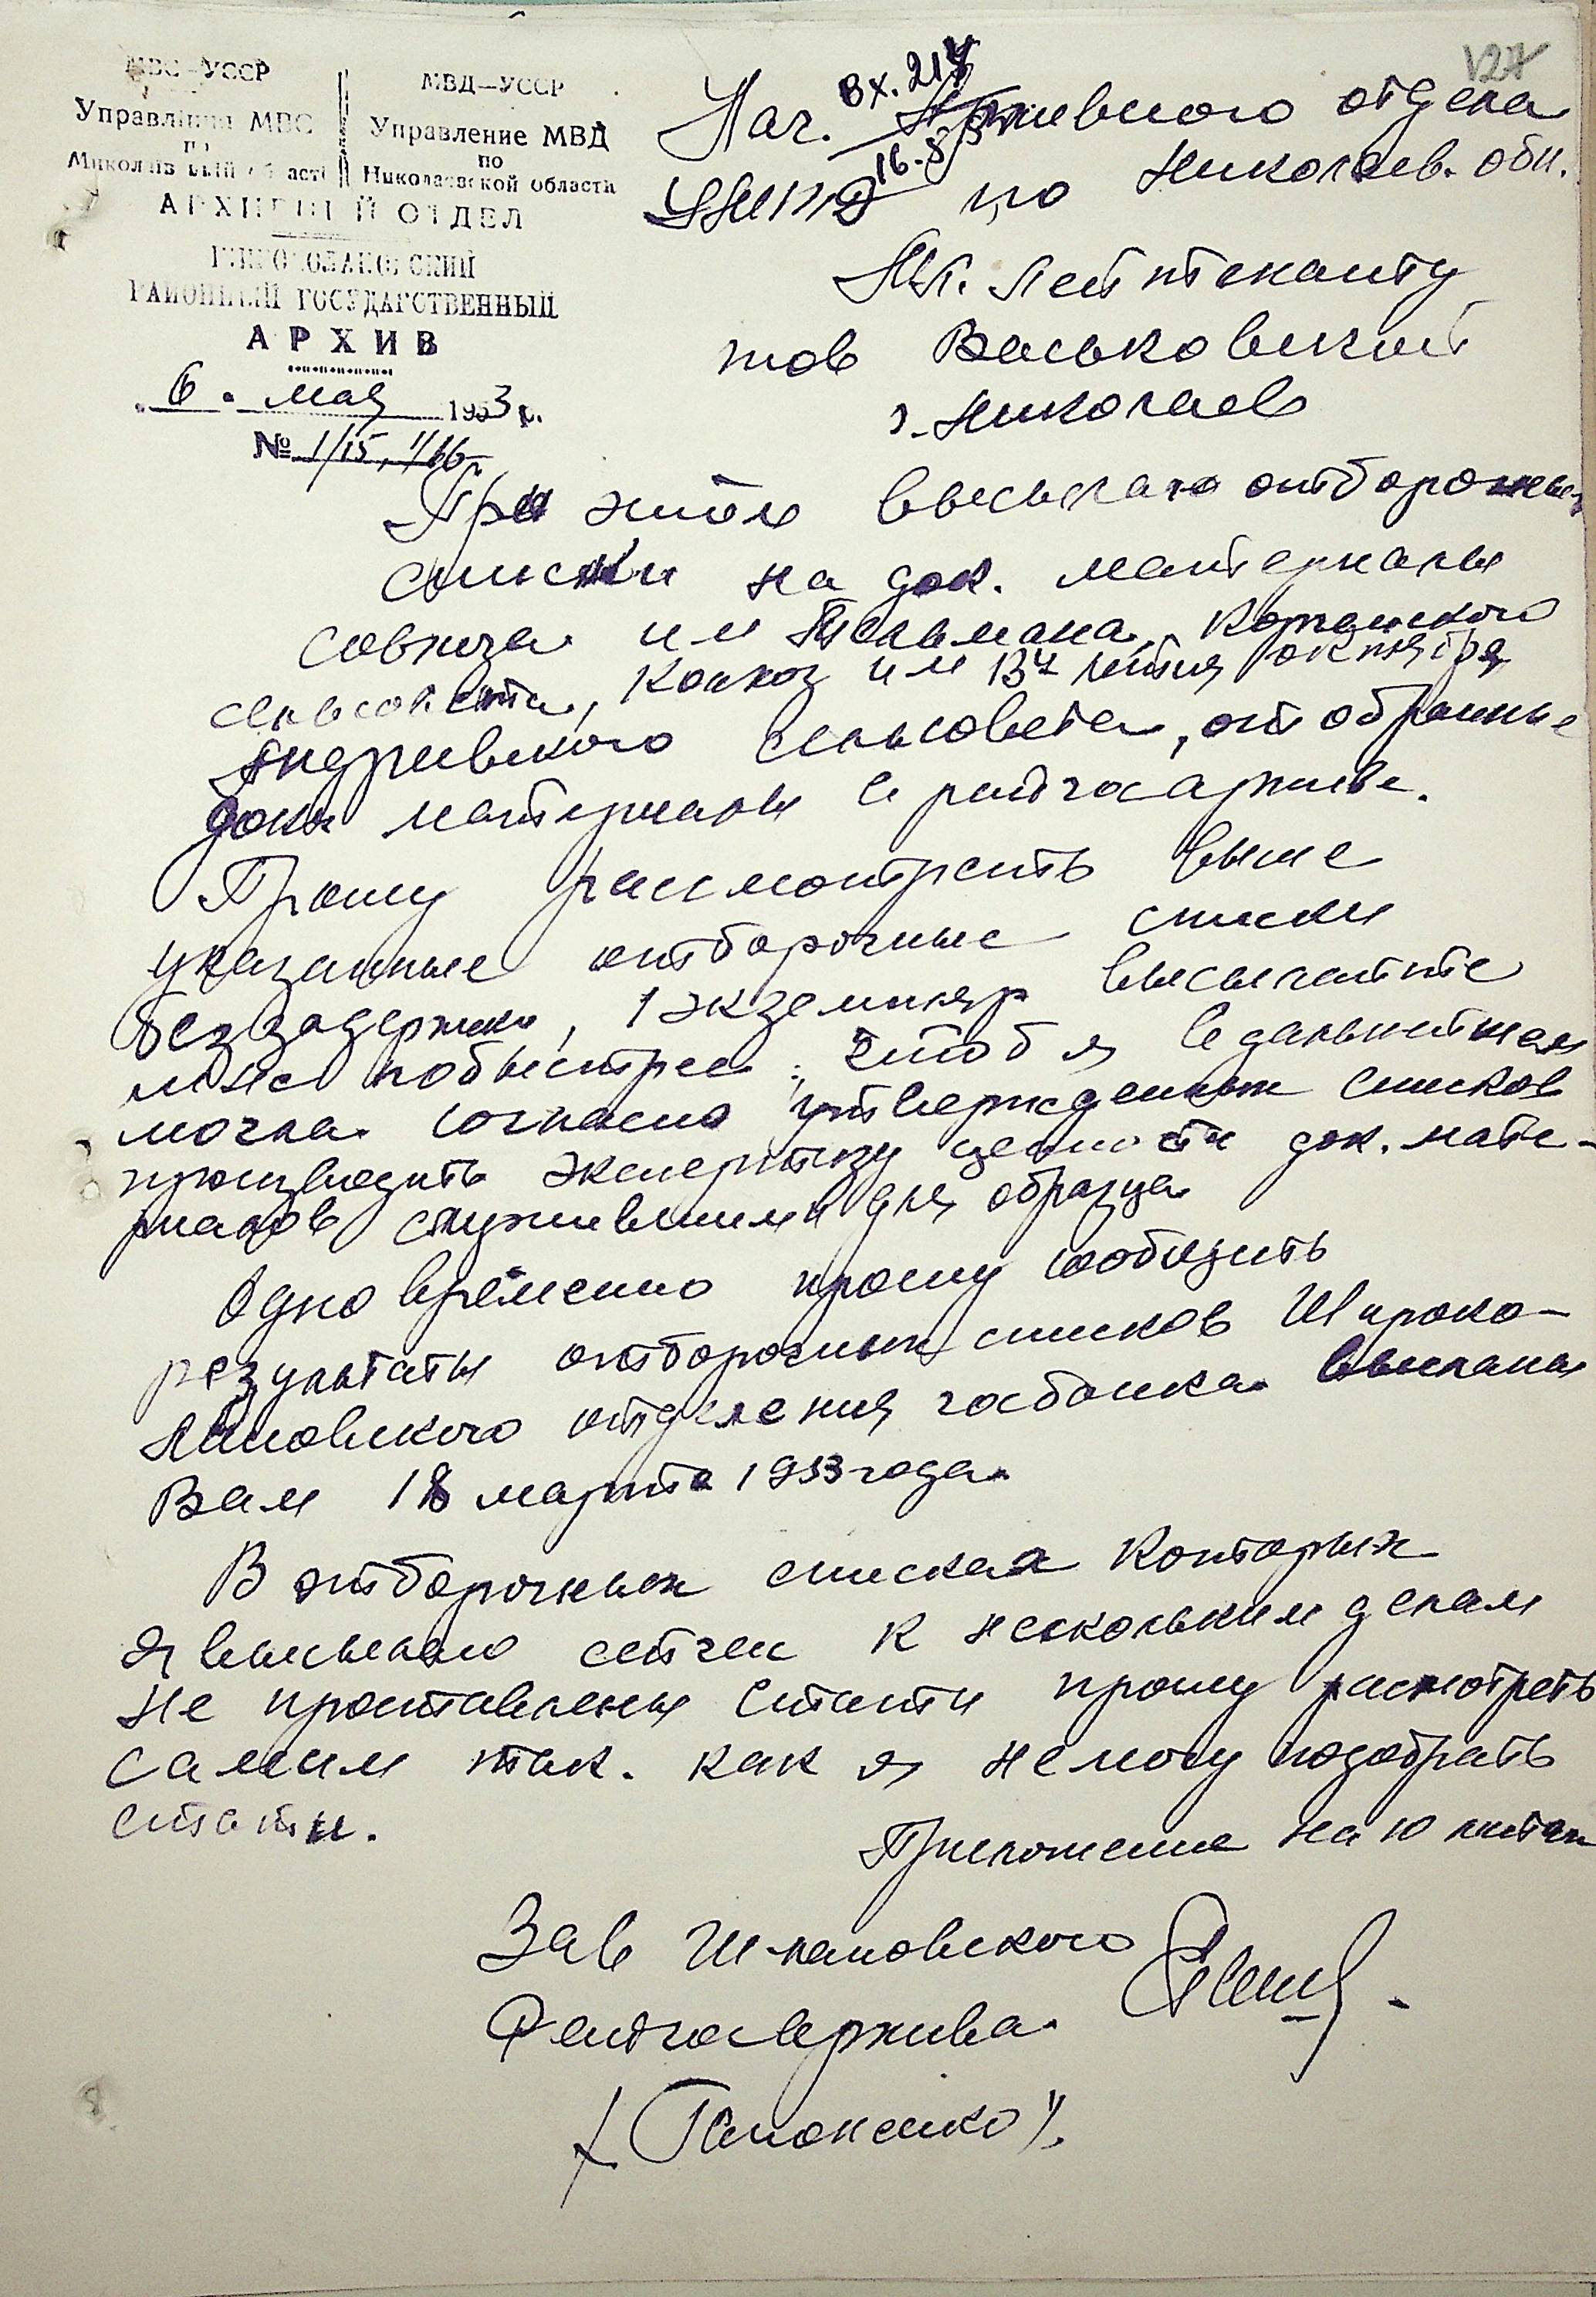 127
МВС—УССР
Управління МВС
по
Миколаївській області
МВД—УССР
Управление МВД
по
Николаевской области
АРХИВНЫЙ ОТДЕЛ
ШИРОКОЛАНОВСКИЙ
РАЙОННЫЙ ГОСУДАРСТВЕННЫЙ
АРХИВ
"6" мая 1953 г.
№ 1/15, 1/16
Вх. 214
16.5.53
Нач. Архивного отдела
УМВД по Николаев. обл.
Мл. Лейттенанту
тов Васьковский
г. Николаев
При этом высылаю отборочные
списки на док. материалы
совхоза им Тельмана,
сельсовета, колхоз им 13ч летия октября
Андреевского сельсовета, отобранные
док материалы в райгосархиве.
Прошу рассмотреть выше
указанные отборочные списки
без задержки, 1 экземпляр высылайте
мне побыстрее, чтоб я в дальнейшем
могла согласно утвержденных списков
производить экспертизу ценности док. мате-
риалов служившими для образца
Одновременно прошу сообщить
результаты отборочных списков Широко-
лановского отделения госбанка высланы
Вам 18 марта 1953 года.
В отборочных списках которых
я высылаю сейчас к нескольким делам
не проставлены статьи прошу расмотреть
самим так. как я немогу подобрать
статьи.
Приложение на 10 листах
Зав Ш-лановского
Райгосархива
(Гапоненко).